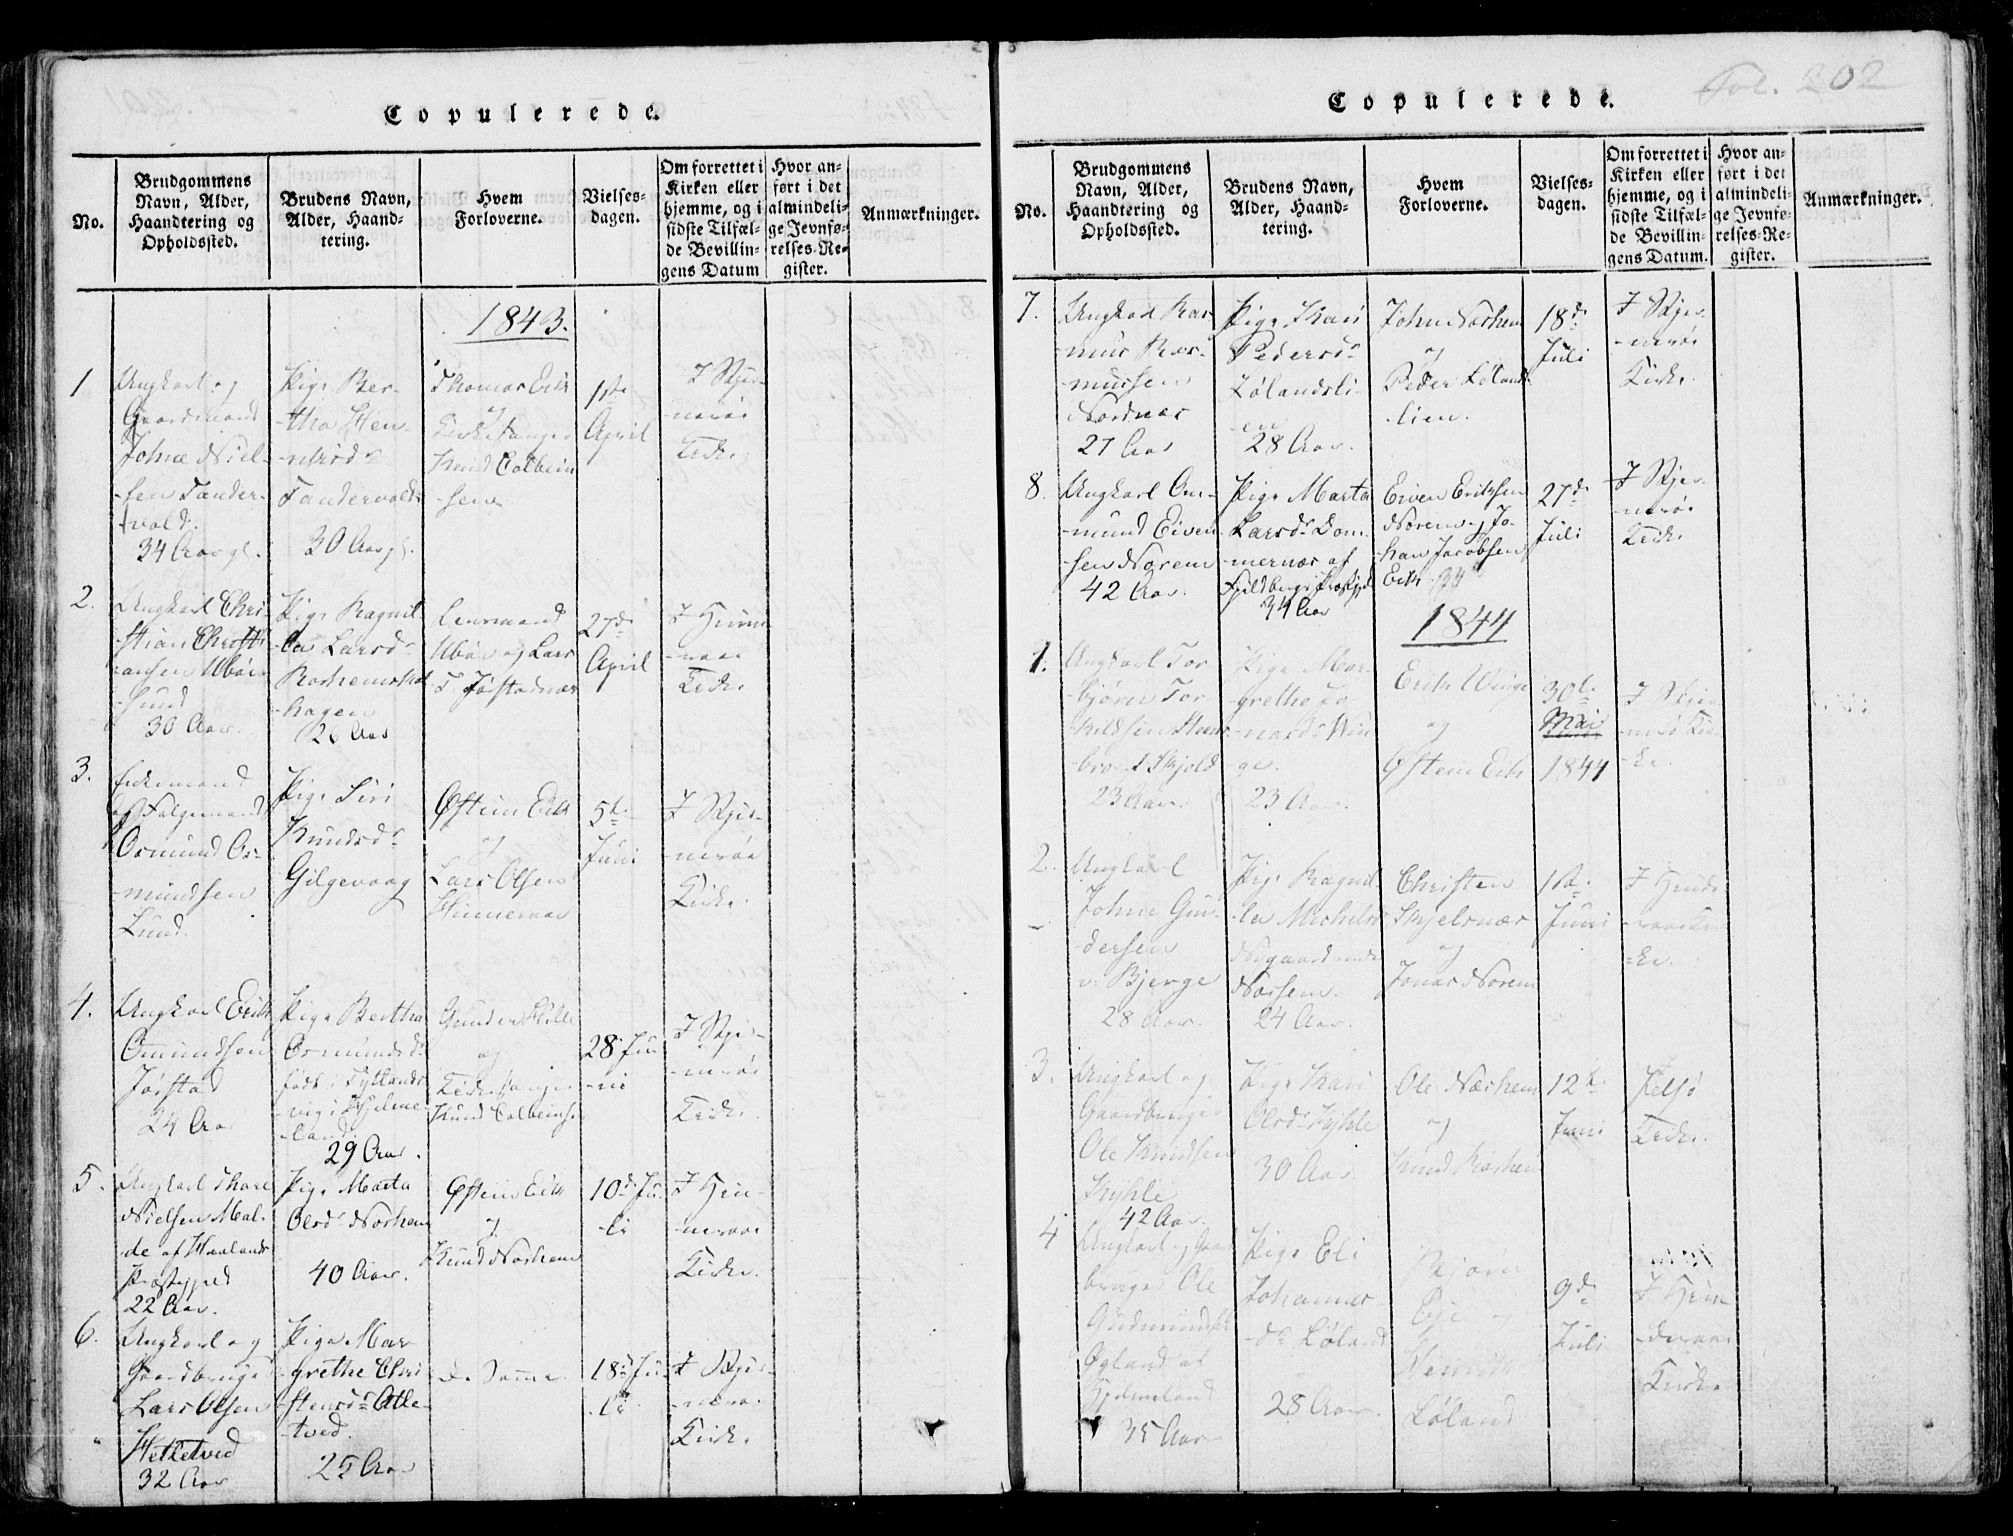 Copulerede.
No.
Brudgommens
Navn, Alder,
Haandtering og
Opholdssted.
Brudens Navn,
Alder, Haand-
tering.
Hvem
Forloverne.
Vielses-
dagen.
Om forrettet i
Kirken eller
hjemme, og i
sidste Tilfæl-
de Bevillin-
gens Datum
Hvor an-
ført i det
almindeli-
ge Jevnfø-
relses-Re-
gister.
Anmærkninger.
1843.
1
Ungkarl og
Gaardmand
Johne Niel-
sen Tander-
vold.
34 Aar gl.
Pige Ber-
tha Hen-
Tandervold
30 Aar gl.
Thomas Erik
og
Kirkesanger
Knud Colbein
-sen
1ste
April
I Skjer-
nerøe
Kirke
2.
Ungkarl Chri-
stian Christi-
ansen Ubøe-
sund
30 Aar.
Pige Ragnil-
la Larsd.
26 Aar
Lensmand
Ubøe og Lars
T. Jørstadnæs
27de
April
I Hinne-
raae
Kirke
3.
Enkemand
Osmund Os-
mundsen
Lund.
Pige Siri
Knudsd.
Gilgevaag
Østein Erik
og
Lars Olsen
Hinneraae
5te
Juni
I Skjer-
nerøe
Kirke.
4.
Ungkarl Erik
Omundsen
Jørstad
24 Aar
Pige Bertha
Osmundsd.
født i Fytlands-
vig i Hjelme-
land
29 Aar.
Gunder Hille
og
Kirkesanger
Knud Colbeins.
28 Ju-
ni
I Skjer-
nerøe
Kirke.
5.
Ungkarl Thore
Nielsen Mal-
de af Haalands
Præstegjeld
22 Aar.
Pige Marta
Olsd. Norheim
40 Aar.
Østein Erik
og
Knud Norheim
10de Ju-
li
I Hin-
neraae
Kirke.
6.
Ungkarl og
Gaardbruger
Lars Olsen
Hetletved
32 Aar
Pige Mar-
grethe Chri-
stensd. Atle-
tved.
25 Aar
de Samme.
18de Ju-
li
I Skjer-
nerøe
Kirke
Fol. 202
Copulerede.
No.
Brudgommens
Navn, Alder,
Haandtering og
Opholdssted.
Brudens Navn,
Alder, Haand-
tering.
Hvem
Forloverne.
Vielses-
dagen.
Om forrettet i
Kirken eller
hjemme, og i
sidste Tilfæl-
de Bevillin-
gens Datum.
Hvor an-
ført i det
almindeli-
ge Jevnfø-
relses-Re-
gister.
Anmærkninger.
7.
Ungkarl Ras-
mus Ras-
mussen
Nordnæs
27 Aar
Pige Kari
Pedersd.
Lølandsli-
en
28 Aar.
John Norhem
og
Peder Løland-
lien.
18de
Juli
I Skjer-
nerøe
Kirke.
8.
Ungkarl Om-
mund Eiven-
sen Norem
42 Aar.
Pige Marta
Larsd. Dom-
mersnæs af
34 Aar
Eiven Eriksen
Norem og Jo-
han Jacobsen
Erik
27de
Juli
I Skjer-
nerøe
Kirke
1844
1.
Ungkarl Tor-
bjørn Tor-
kildsen
Skjold
23 Aar.
Pige Mar-
grethe Jo-
nasd. Win-
ge.
23 Aar.
Erik Winge
og
Østein Erik
30te
Mai
1844
I Skjer-
nerø Kir-
ke.
2.
Ungkarl
Johne Gun-
dersen
Bjerge
28 Aar.
Pige Ragnil-
la Michelsd.
24 Aar.
Christen
Skjelsnæs
og
Jonas Norem
1ste
Juni
I Hinde-
raae Kir-
ke.
3.
Ungkarl og
Gaardbruger
Ole Knudsen
Kyhle
42 Aar.
Pige Kari
Olsd. Kyhle
30 Aar
Ole Norhem
og
12te
Juni
Jelsø
Kirke.
4
Ungkarl og Gaard-
bruger Ole
Gudmundsen
Øgland af
Hjelmeland
35 Aar
Pige Eli
Johannes-
d. Løland
28 Aar.
Bjørn
Eje og
Henrik
Løland
9de
Juli
I Hin-
deraae
Kirke